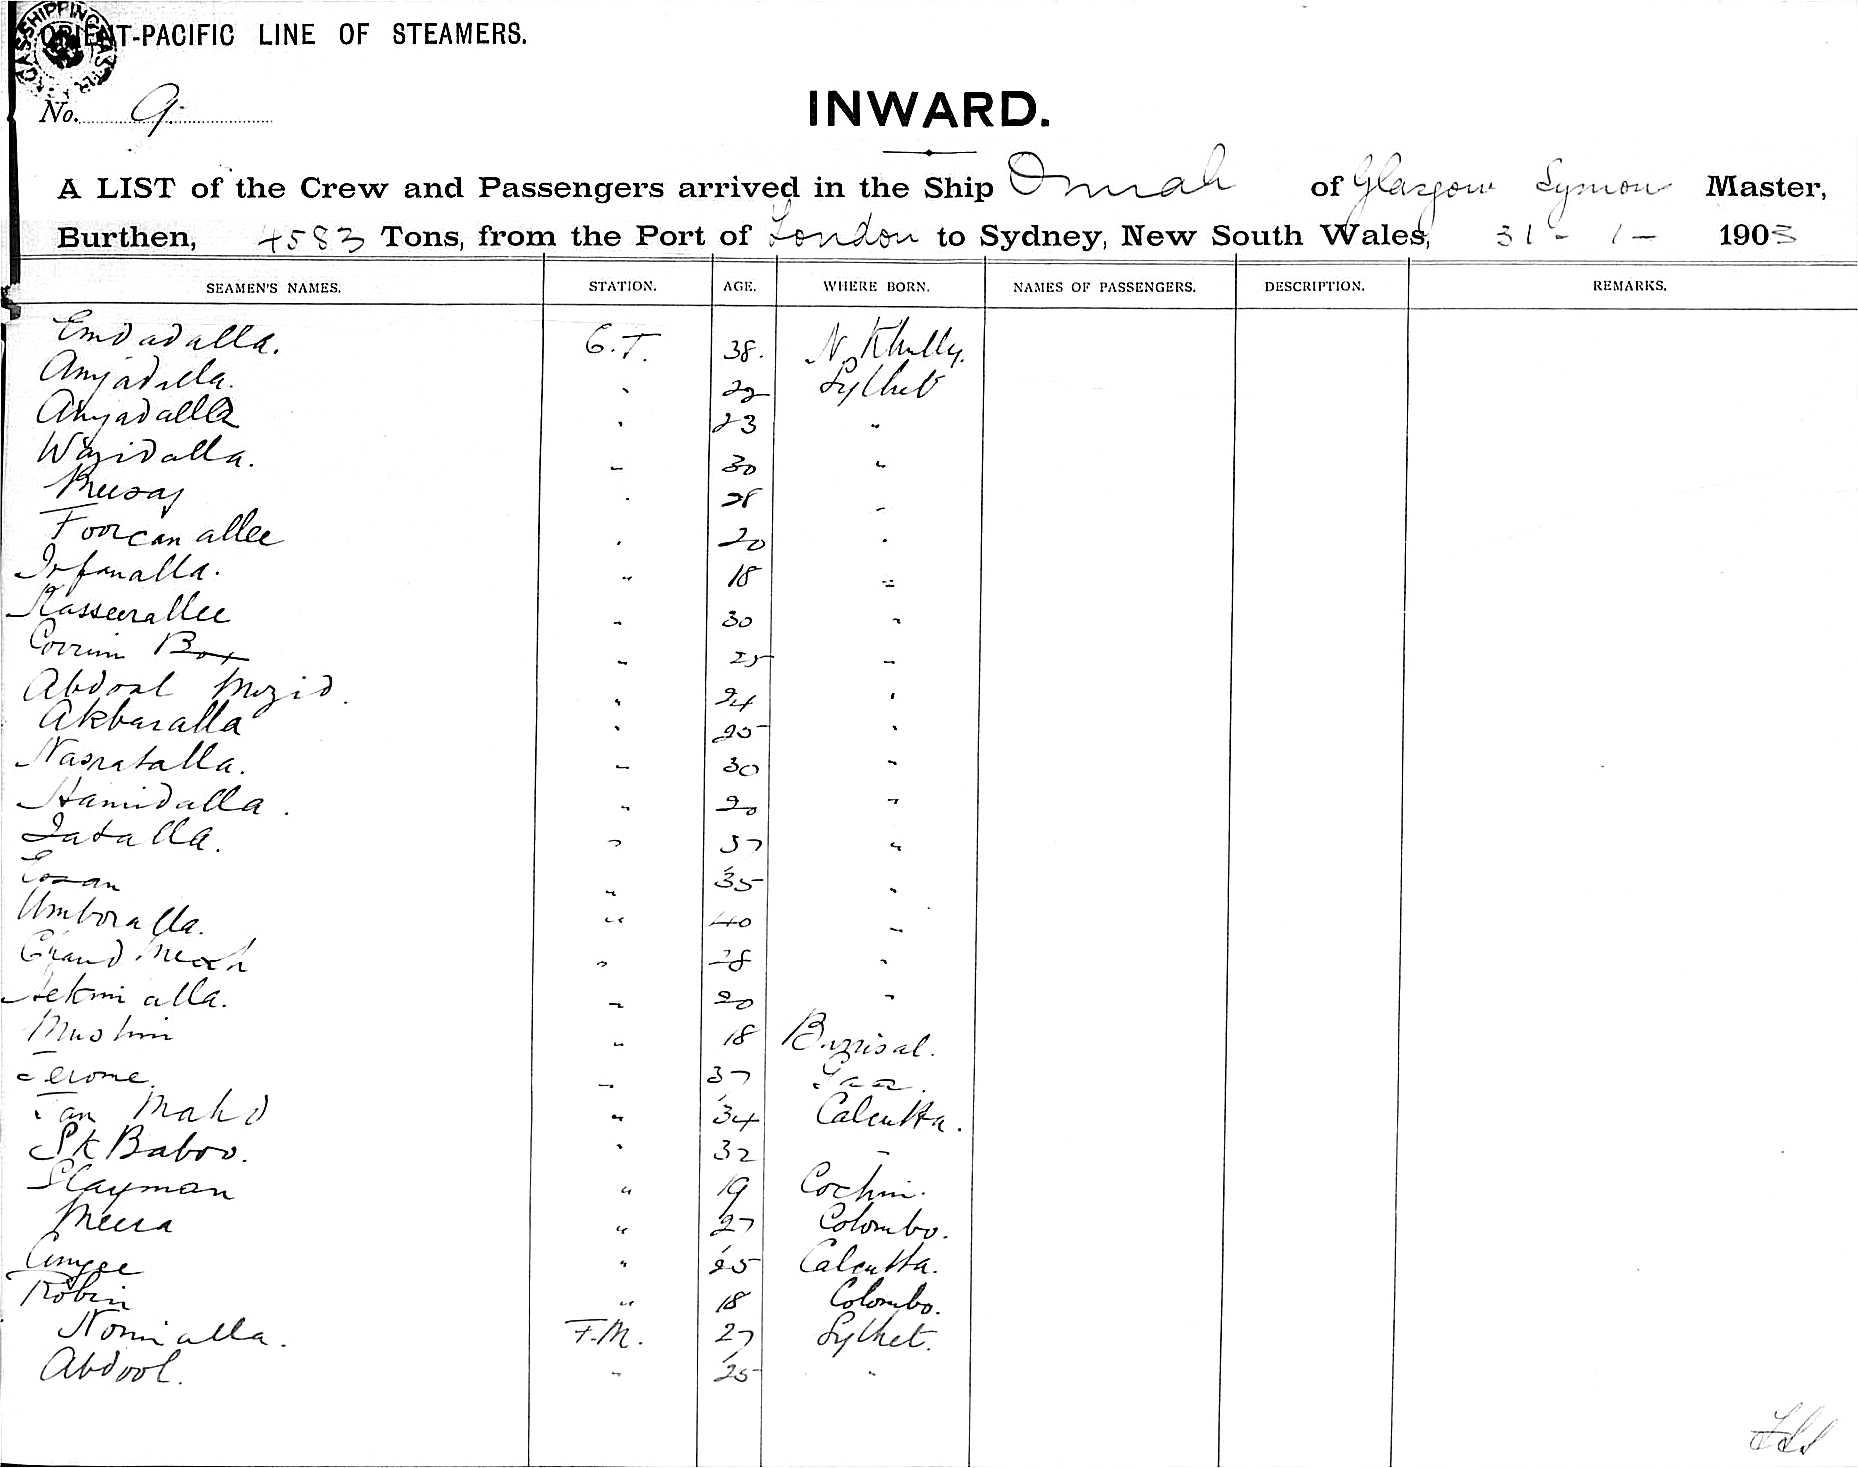 ORIENT-PACIFIC LINE OF STEAMERS.
No. 9.
INWARD.
A LIST of the Crew and Passengers arrived in the Ship Omrah of Glasgow Symons Master,
Burthen, 4583 Tons, from the Port of London to Sydney, New South Wales, 31-1-1903
SEAMEN'S NAMES. STATION. AGE. WHERE BORN. NAMES OF PASSENGERS. DESCRIPTION. REMARKS.
Emdadalla. C.T. 38. N. Khully.
Amjadalla. " 22 Sylhet
Amjadalla " 23 "
Wazidalla. " 30 "
" 28 "
Foorcanallee " 20 "
Irfanalla. " 18 "
" 30 "
Corrim Box " 25 "
Abdool Mozid. " 24 "
Akbaralla " 25 "
Nasratalla. " 30 "
Hamidalla. " 20 "
" 37 "
Essan " 35 "
Umboralla. " 40 "
Meeah " 28 "
Hekmialla. " 20 "
Muslim " 18 Burrisal.
Jerome. " 37 Goa.
Jan Mahd " 34 Calcutta.
Sk Baboo. " 32 "
Slayman " 19 Cochin.
Meera " 27 Colombo.
" 25 Calcutta.
Robin " 18 Colombo.
Nomialla. F.M. 27 Sylhet.
Abdool. " 25 "